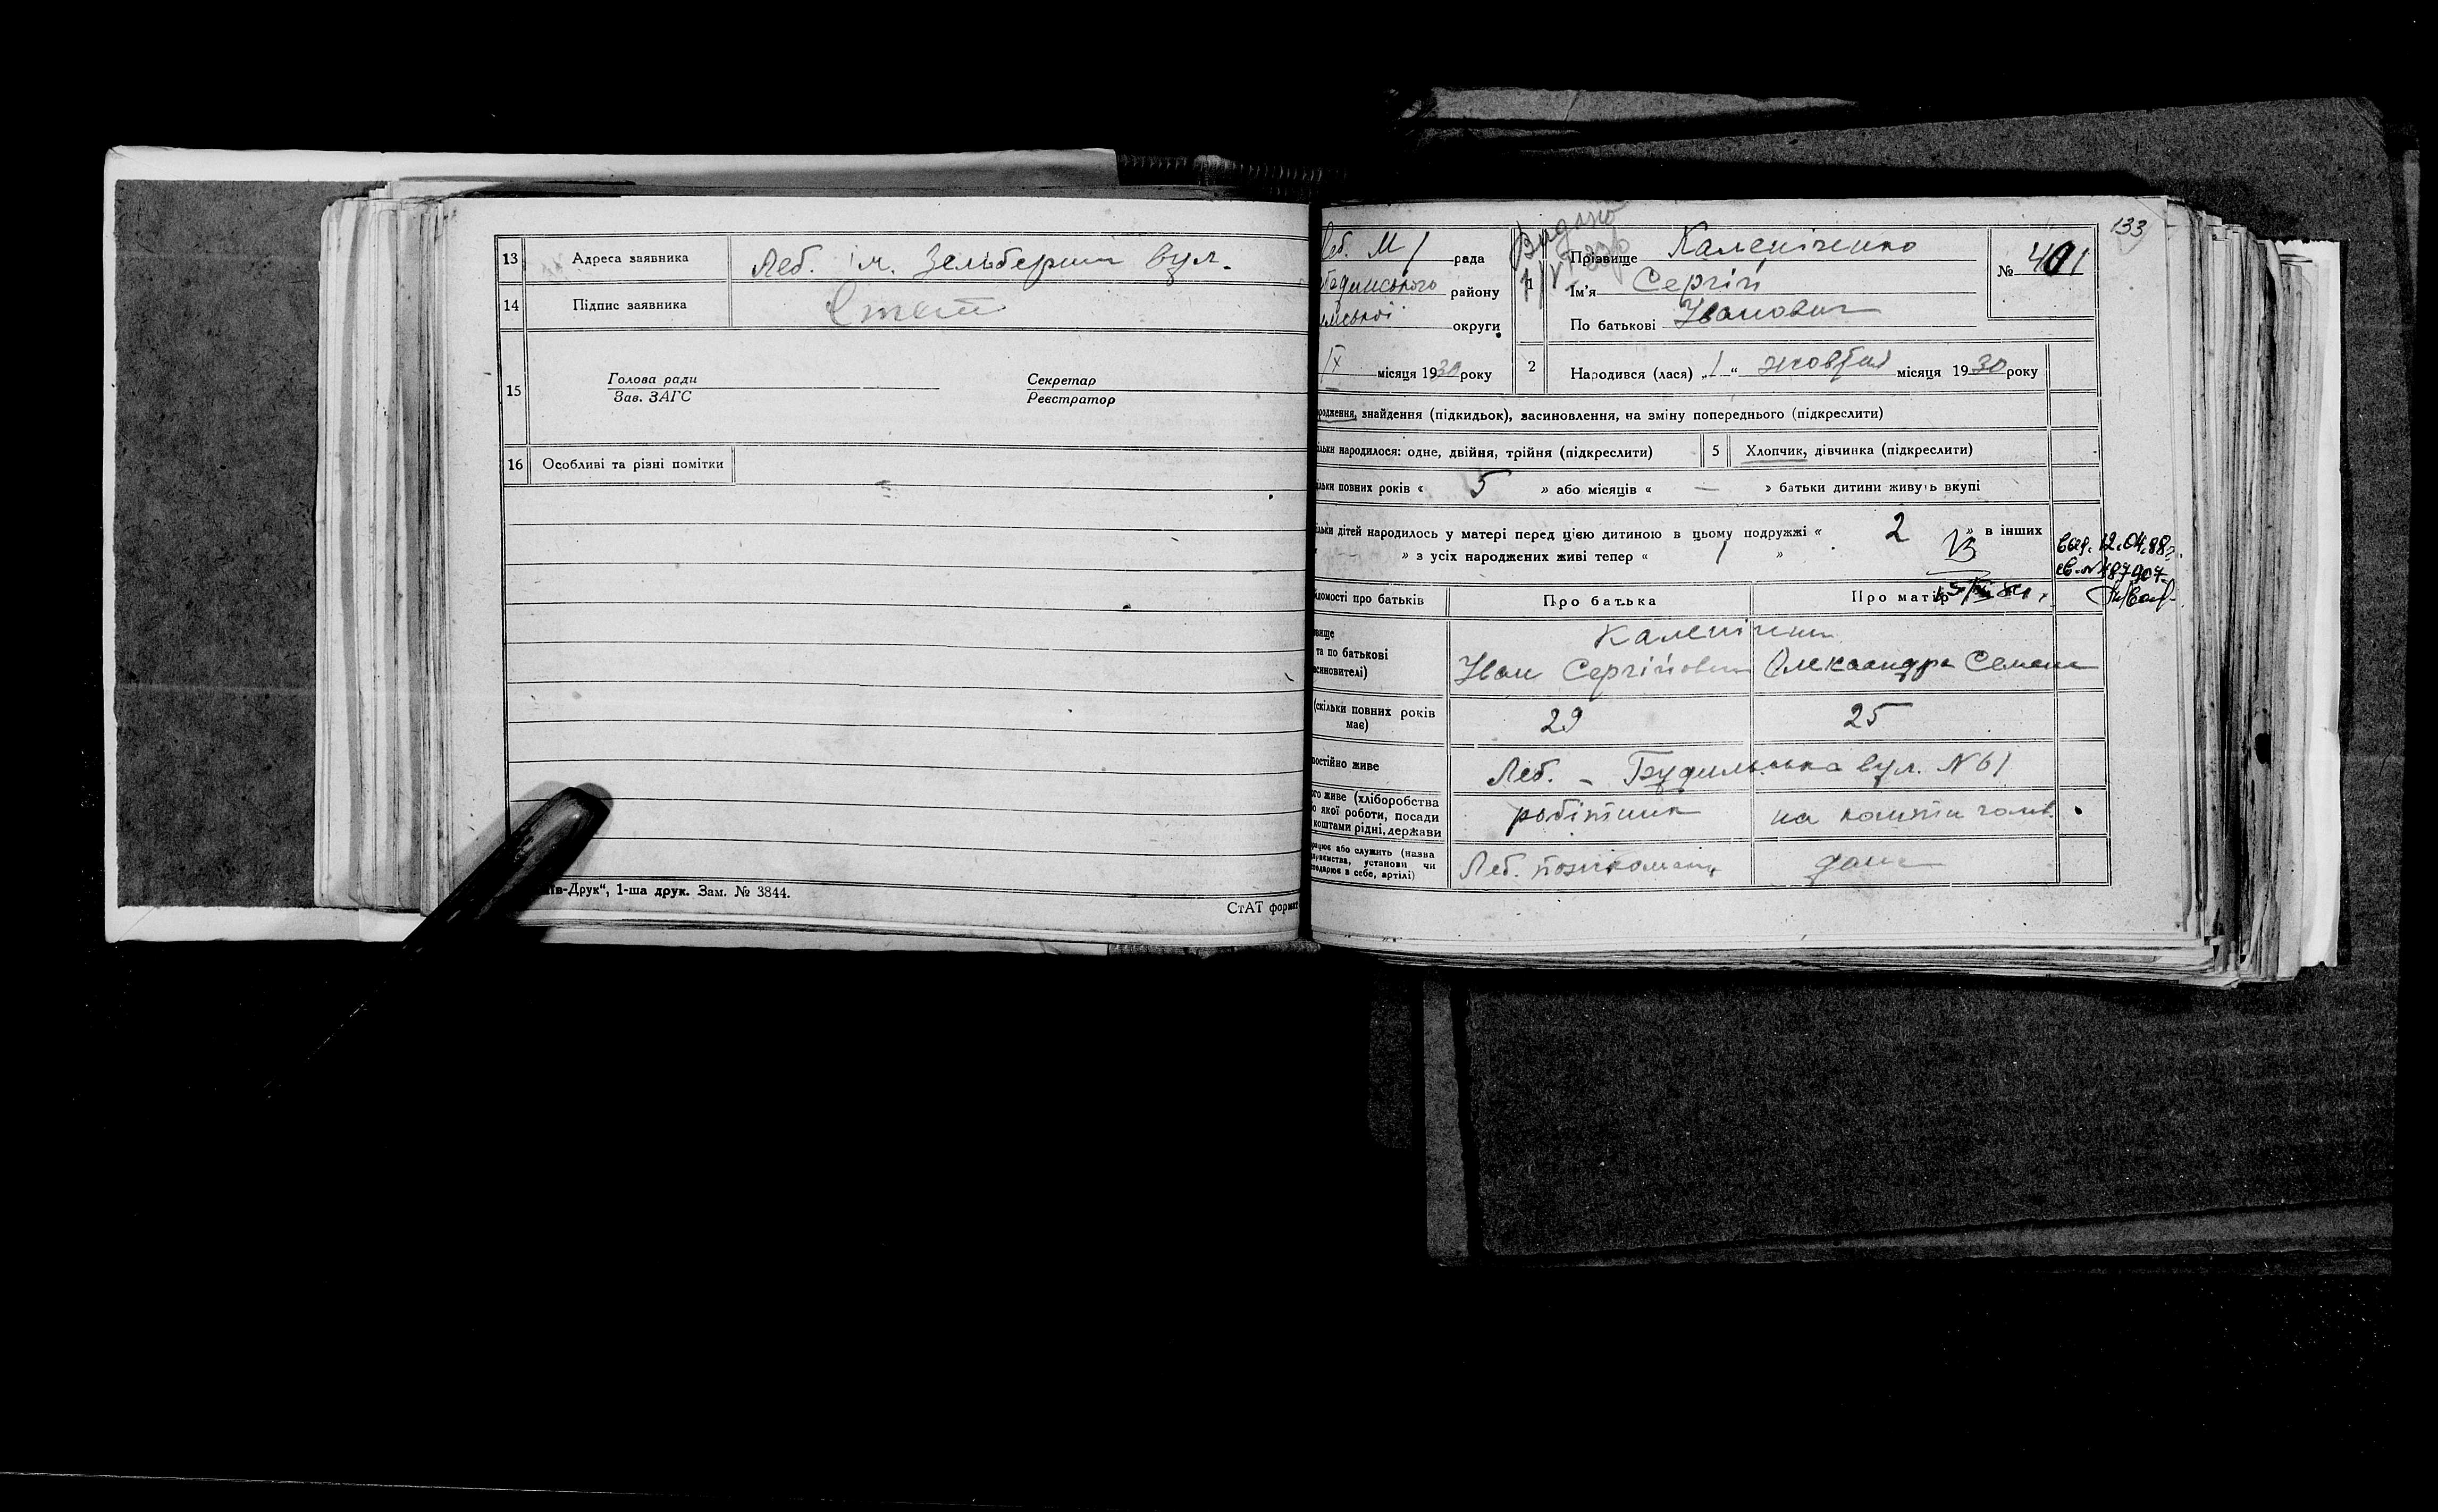 13 Адреса заявника Леб. ім. Зельберши вул.
14 Підпис заявника
15 Голова ради Секретар
Зав. ЗАГС Реєстратор
16 Особливі та різні помітки
ів-Друк“, 1-ша друк. Зам. № 3844.
СтАТ формат
133
Леб. М/ рада
района
округи
IX місяця 1930 року
Видано
1 Прізвище Калепіченко
Ім'я Сергій
По батькові Іванович
№ 401
2 Народився (лася) „1“ жовтня місяця 1930 року
родження, знайдення (підкидьок), засиновлення, на зміну попереднього (підкреслити)
ільки народилося: одне, двійня, трійня (підкреслити) 5 Хлопчик, дівчинка (підкреслити)
ільки повних років « 5 » або місяців « — » батьки дитини живуть вкупі
ільки дітей народилось у матері перед цією дитиною в цьому подружжі « 2 » в інших
» з усіх народжених живі тепер « 1 »
выд. 12.04.88г.
св. № 487907
ідомості про батьків Про батька Про матір
звище
та по батькові
синовителі)
Калепіченки
Іван Сергійович Олександра Семен
(скільки повних років має) 29 25
постійно живе Леб. - Будильська вул. N 61
ого живе (хліборобства
о якої роботи, посади
коштами рідні, держави
робітник на кошти чолов.
рацює або служить (назва
приємства, установи чи
подарює в себе, артілі)
Леб. пожкоманд дома